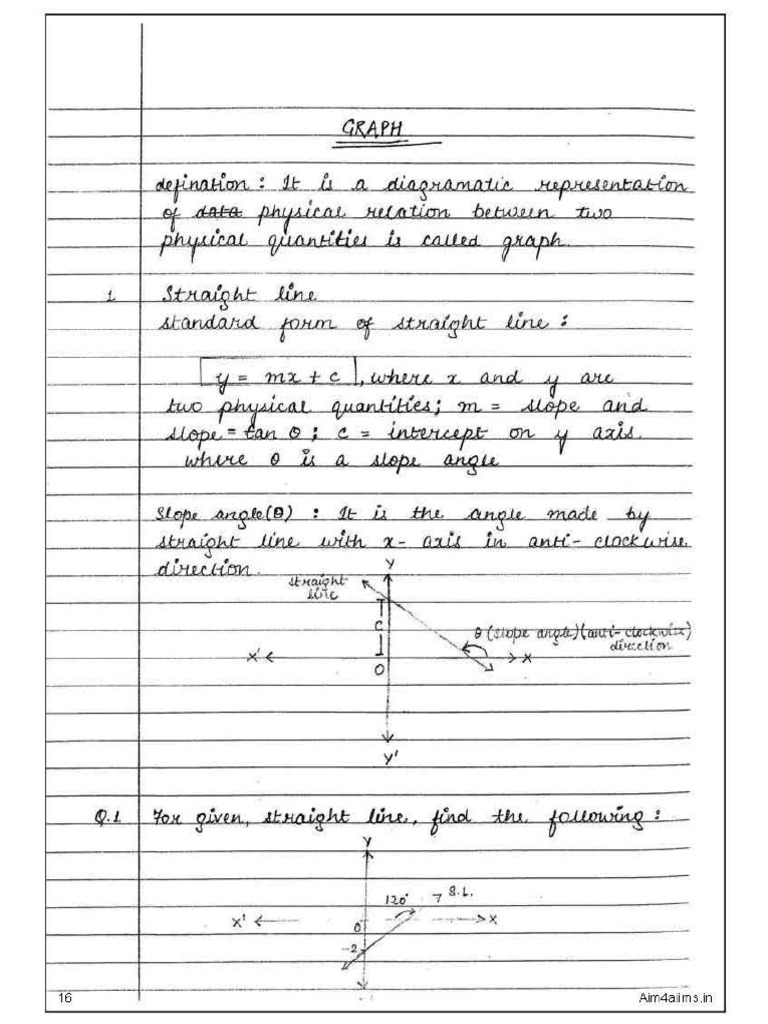 GRAPH
defination : It is a diagramatic representation
of data physical relation between two
physical quantities is called graph.
1 Straight line
standard form of straight line :
y = mx + c , where x and y are
two physical quantities; m = slope and
slope = tan θ ; c = intercept on y axis.
where θ is a slope angle
Slope angle(θ) : It is the angle made by
straight line with x-axis in anti-clockwise
direction.
Y
straight
line
T
C
⊥
θ (slope angle)(anti-clockwise)
direction
X'
X
O
Y'
Q.1 For given, straight line, find the following :
Y
120° S.L.
X'
O
X
-2
16
Aim4aiims.in